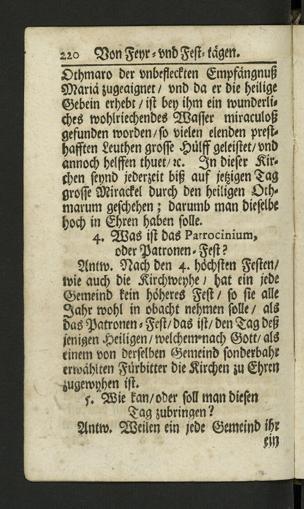 220 Von Feyr- vnd Fest-tägen.
Othmaro der vnbefleckten Empfängnuß
Mariä zugeaignet / vnd da er die heilige
Gebein erhebt / ist bey ihm ein wunderli-
ches wohlriechendes Wasser miraculoß
gefunden worden / so vielen elenden prest-
hafften Leuthen grosse Hülff geleistet / vnd
annoch helffen thuet / ꝛc. In dieser Kir-
chen seynd jederzeit biß auf jetzigen Tag
grosse Mirackel durch den heiligen Oth-
marum geschehen; darumb man dieselbe
hoch in Ehren haben solle.
4. Was ist das Parrocinium,
oder Patronen-Fest?
Antw. Nach den 4. höchsten Festen /
wie auch die Kirchweyhe / hat ein jede
Gemeind kein höheres Fest / so sie alle
Jahr wohl in obacht nehmen solle / als
das Patronen-Fest / das ist / den Tag deß
jenigen Heiligen / welchem nach Gott / als
einem von derselben Gemeind sonderbahr
erwählten Fürbitter die Kirchen zu Ehren
zugewyhen ist.
5. Wie kan / oder soll man diesen
Tag zubringen?
Antw. Weilen ein jede Gemeind ihr
ein